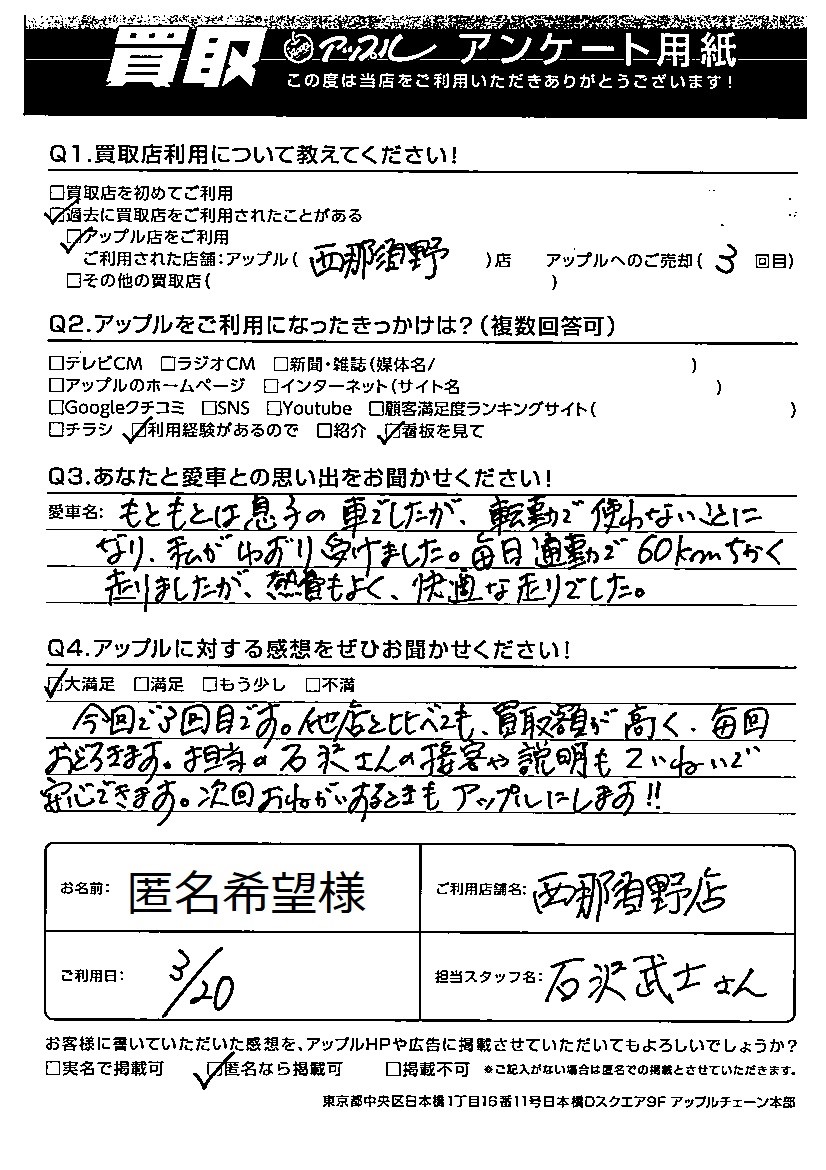 買取 アップル アンケート用紙
この度は当店をご利用いただきありがとうございます!
Q1.買取店利用について教えてください!
□買取店を初めてご利用
☑過去に買取店をご利用されたことがある
☑アップル店をご利用
ご利用された店舗:アップル( 西那須野 )店 アップルへのご売却( 3 回目)
□その他の買取店( )
Q2.アップルをご利用になったきっかけは?(複数回答可)
□テレビCM □ラジオCM □新聞・雑誌(媒体名/ )
□アップルのホームページ □インターネット(サイト名 )
□Googleクチコミ □SNS □Youtube □顧客満足度ランキングサイト( )
□チラシ ☑利用経験があるので □紹介 ☑看板を見て
Q3.あなたと愛車との思い出をお聞かせください!
愛車名: もともとは息子の車でしたが、転勤で使わないことに
なり、私がゆずり受けました。毎日通勤で60kmちかく
走りましたが、燃費もよく、快適な走りでした。
Q4.アップルに対する感想をぜひお聞かせください!
☑大満足 □満足 □もう少し □不満
今回で3回目です。他店と比べても、買取額が高く、毎回
おどろきます。担当の石沢さんの接客や説明もていねいで
安心できます。次回おねがいするときもアップルにします!!
お名前: 匿名希望様 ご利用店舗名: 西那須野店
ご利用日: 3/20 担当スタッフ名: 石沢武士さん
お客様に書いていただいた感想を、アップルHPや広告に掲載させていただいてもよろしいでしょうか?
□実名で掲載可 ☑匿名なら掲載可 □掲載不可 ※ご記入がない場合は匿名での掲載とさせていただきます。
東京都中央区日本橋1丁目16番11号日本橋Dスクエア9F アップルチェーン本部